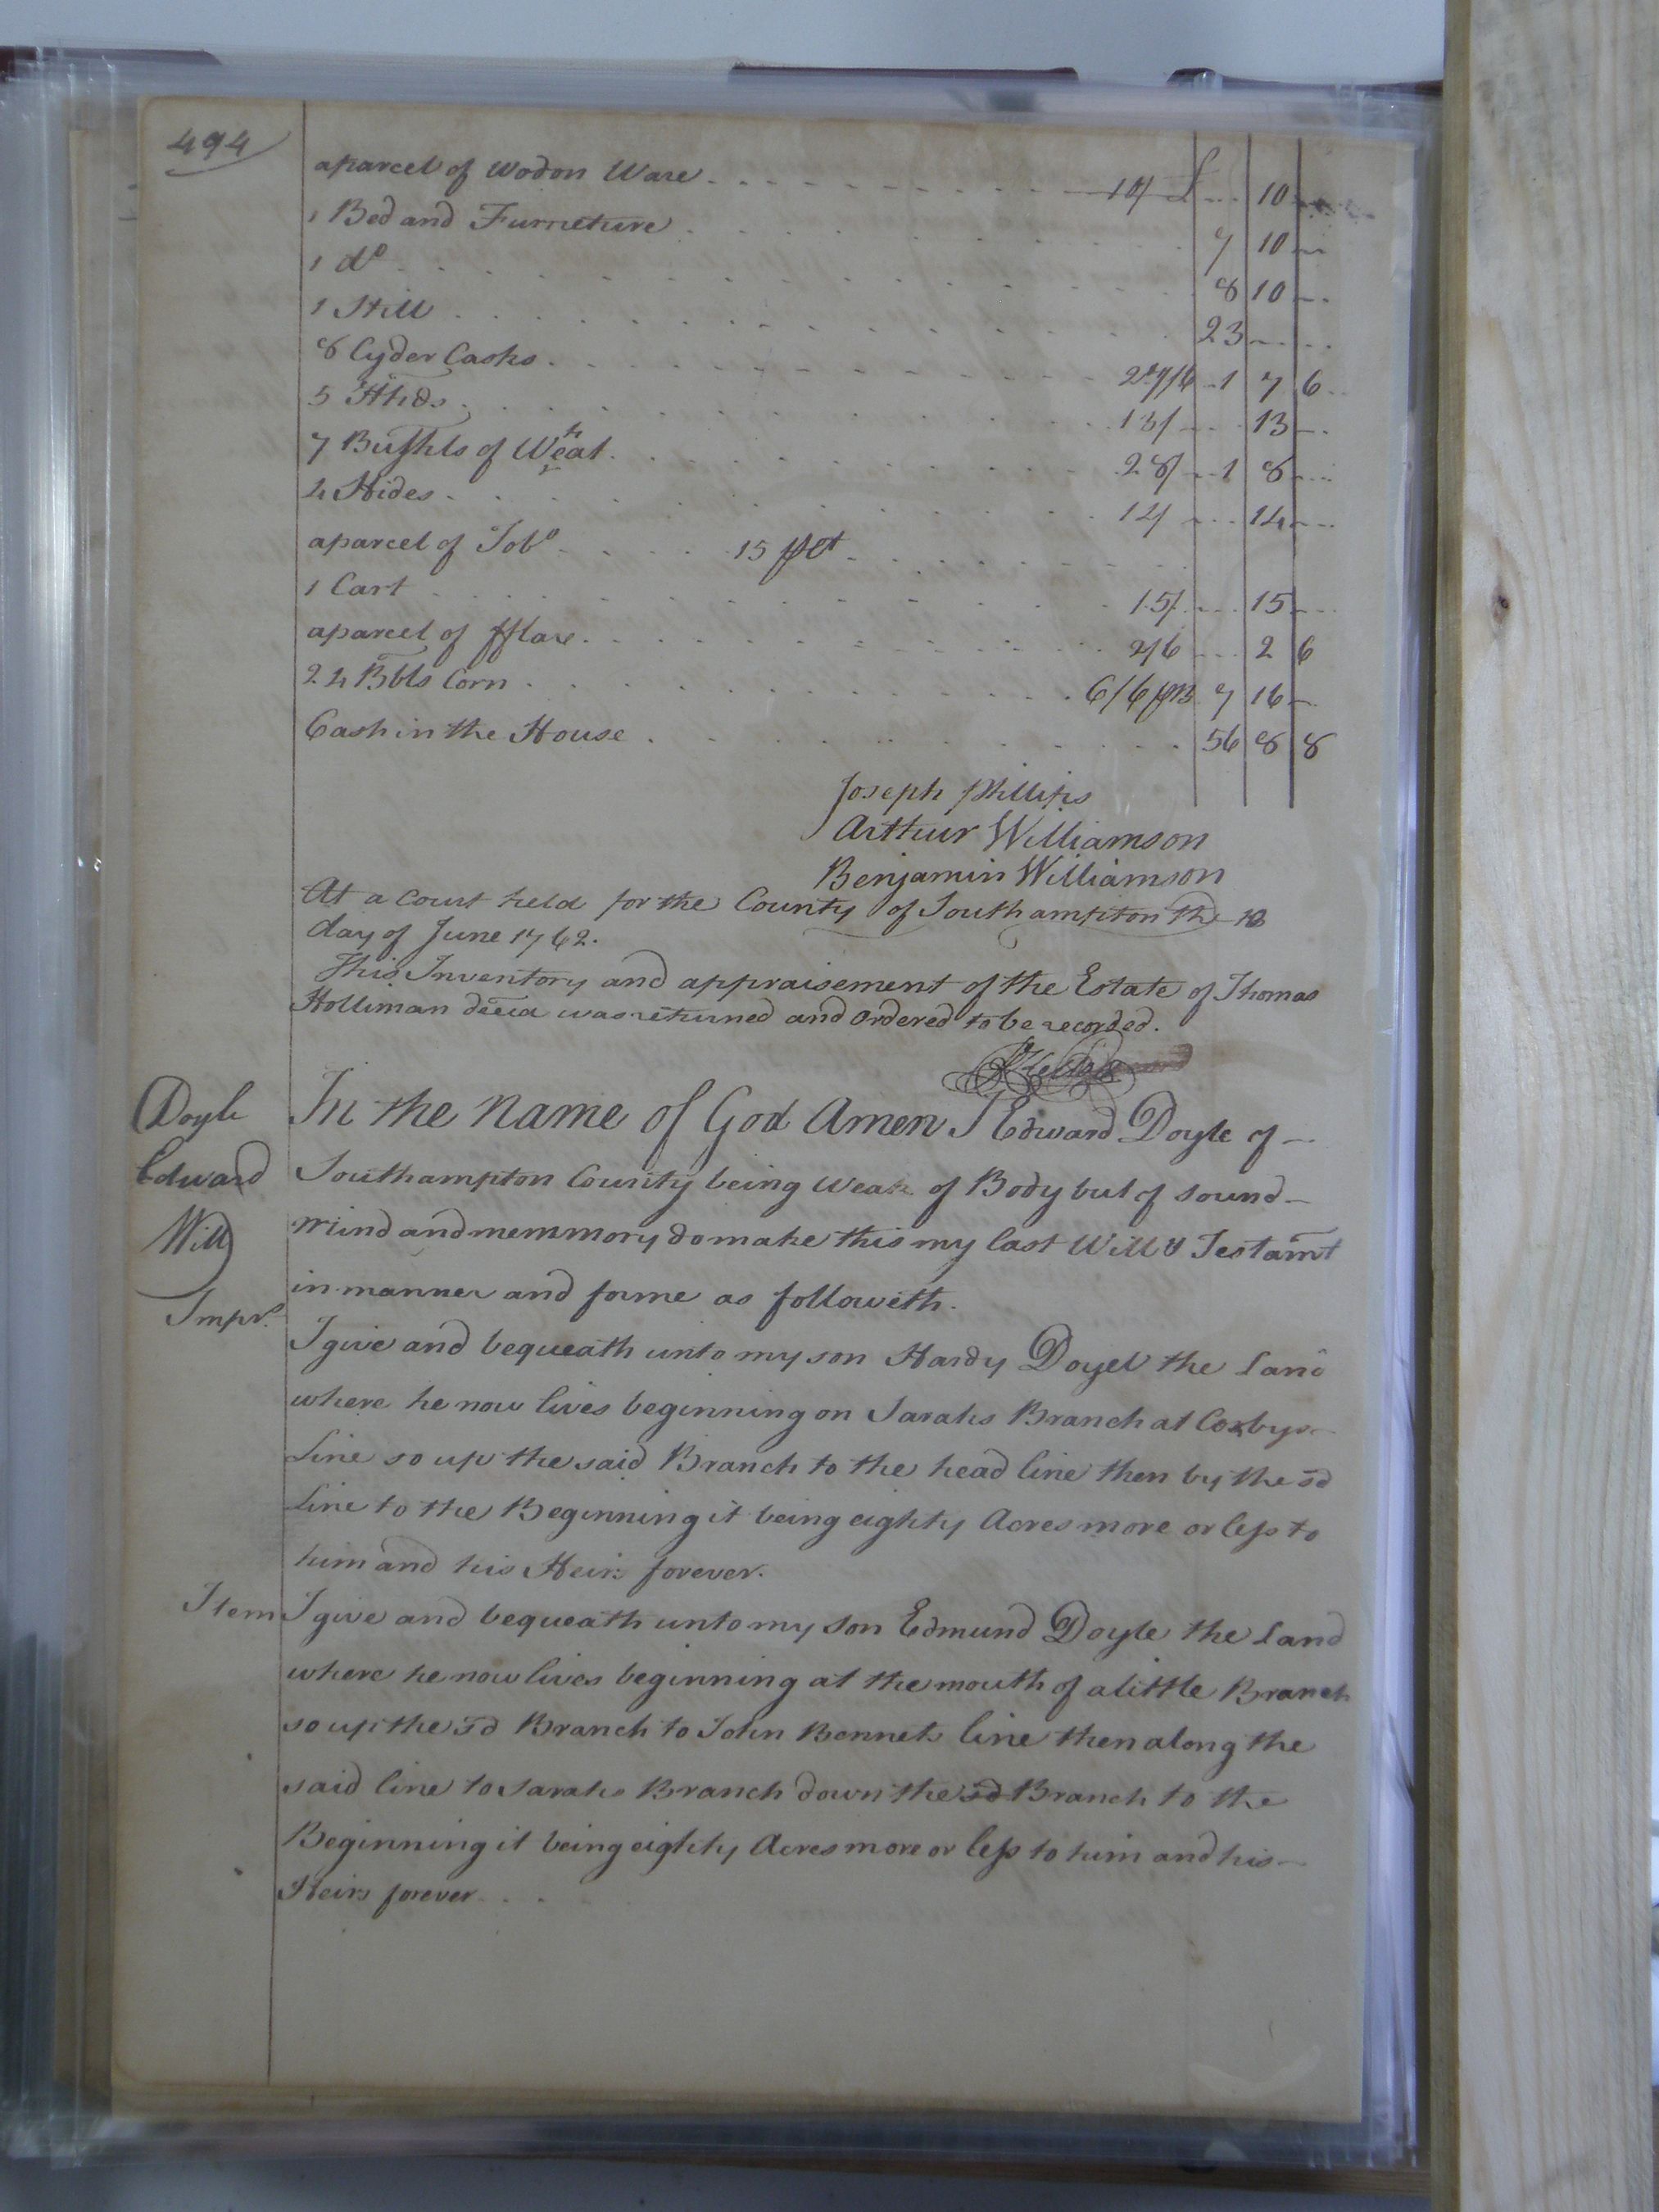 494
aparcel of Wodon Ware 10/ £ 10
1 Bed and Furneture 7 10
1 do 8 10
1 Still 23
8 Cyder Casks 27/6 1 7 6
5 Hhds 13/ 13
7 Bushls of Weat 28/ 1 8
4 Hides 14/ 14
aparcel of Tobo 15 pCt
1 Cart 15/ 15
aparcel of fflax 2/6 2 6
24 Bbls Corn 6/6 pB 7 16
Cash in the House 56 8 8
Joseph Phillips
Arthur Williamson
Benjamin Williamson
At a Court held for the County of Southampton the 10
day of June 1762.
This Inventory and appraisement of the Estate of Thomas
Holliman deced was returned and Ordered to be recorded.
Doyle
Edward
Will
In the Name of God Amen I Edward Doyle of
Southampton County being Weak of Body but of sound
mind and memmory do make this my last Will & Testamt
in manner and forme as followeth.
Impr.
I give and bequeath unto my son Hardy Doyel the Land
where he now lives beginning on Sarahs Branch at Coxbys
Line so up the said Branch to the head line then by the sd
Line to the Beginning it being eighty Acres more or less to
him and his Heirs forever.
Item I give and bequeath unto my Son Edmund Doyle the Land
where he now lives beginning at the mouth of a little Branch
so up the sd Branch to John Bennets line then along the
said line to Sarahs Branch down the sd Branch to the
Beginning it being eighty Acres more or less to him and his
Heirs forever